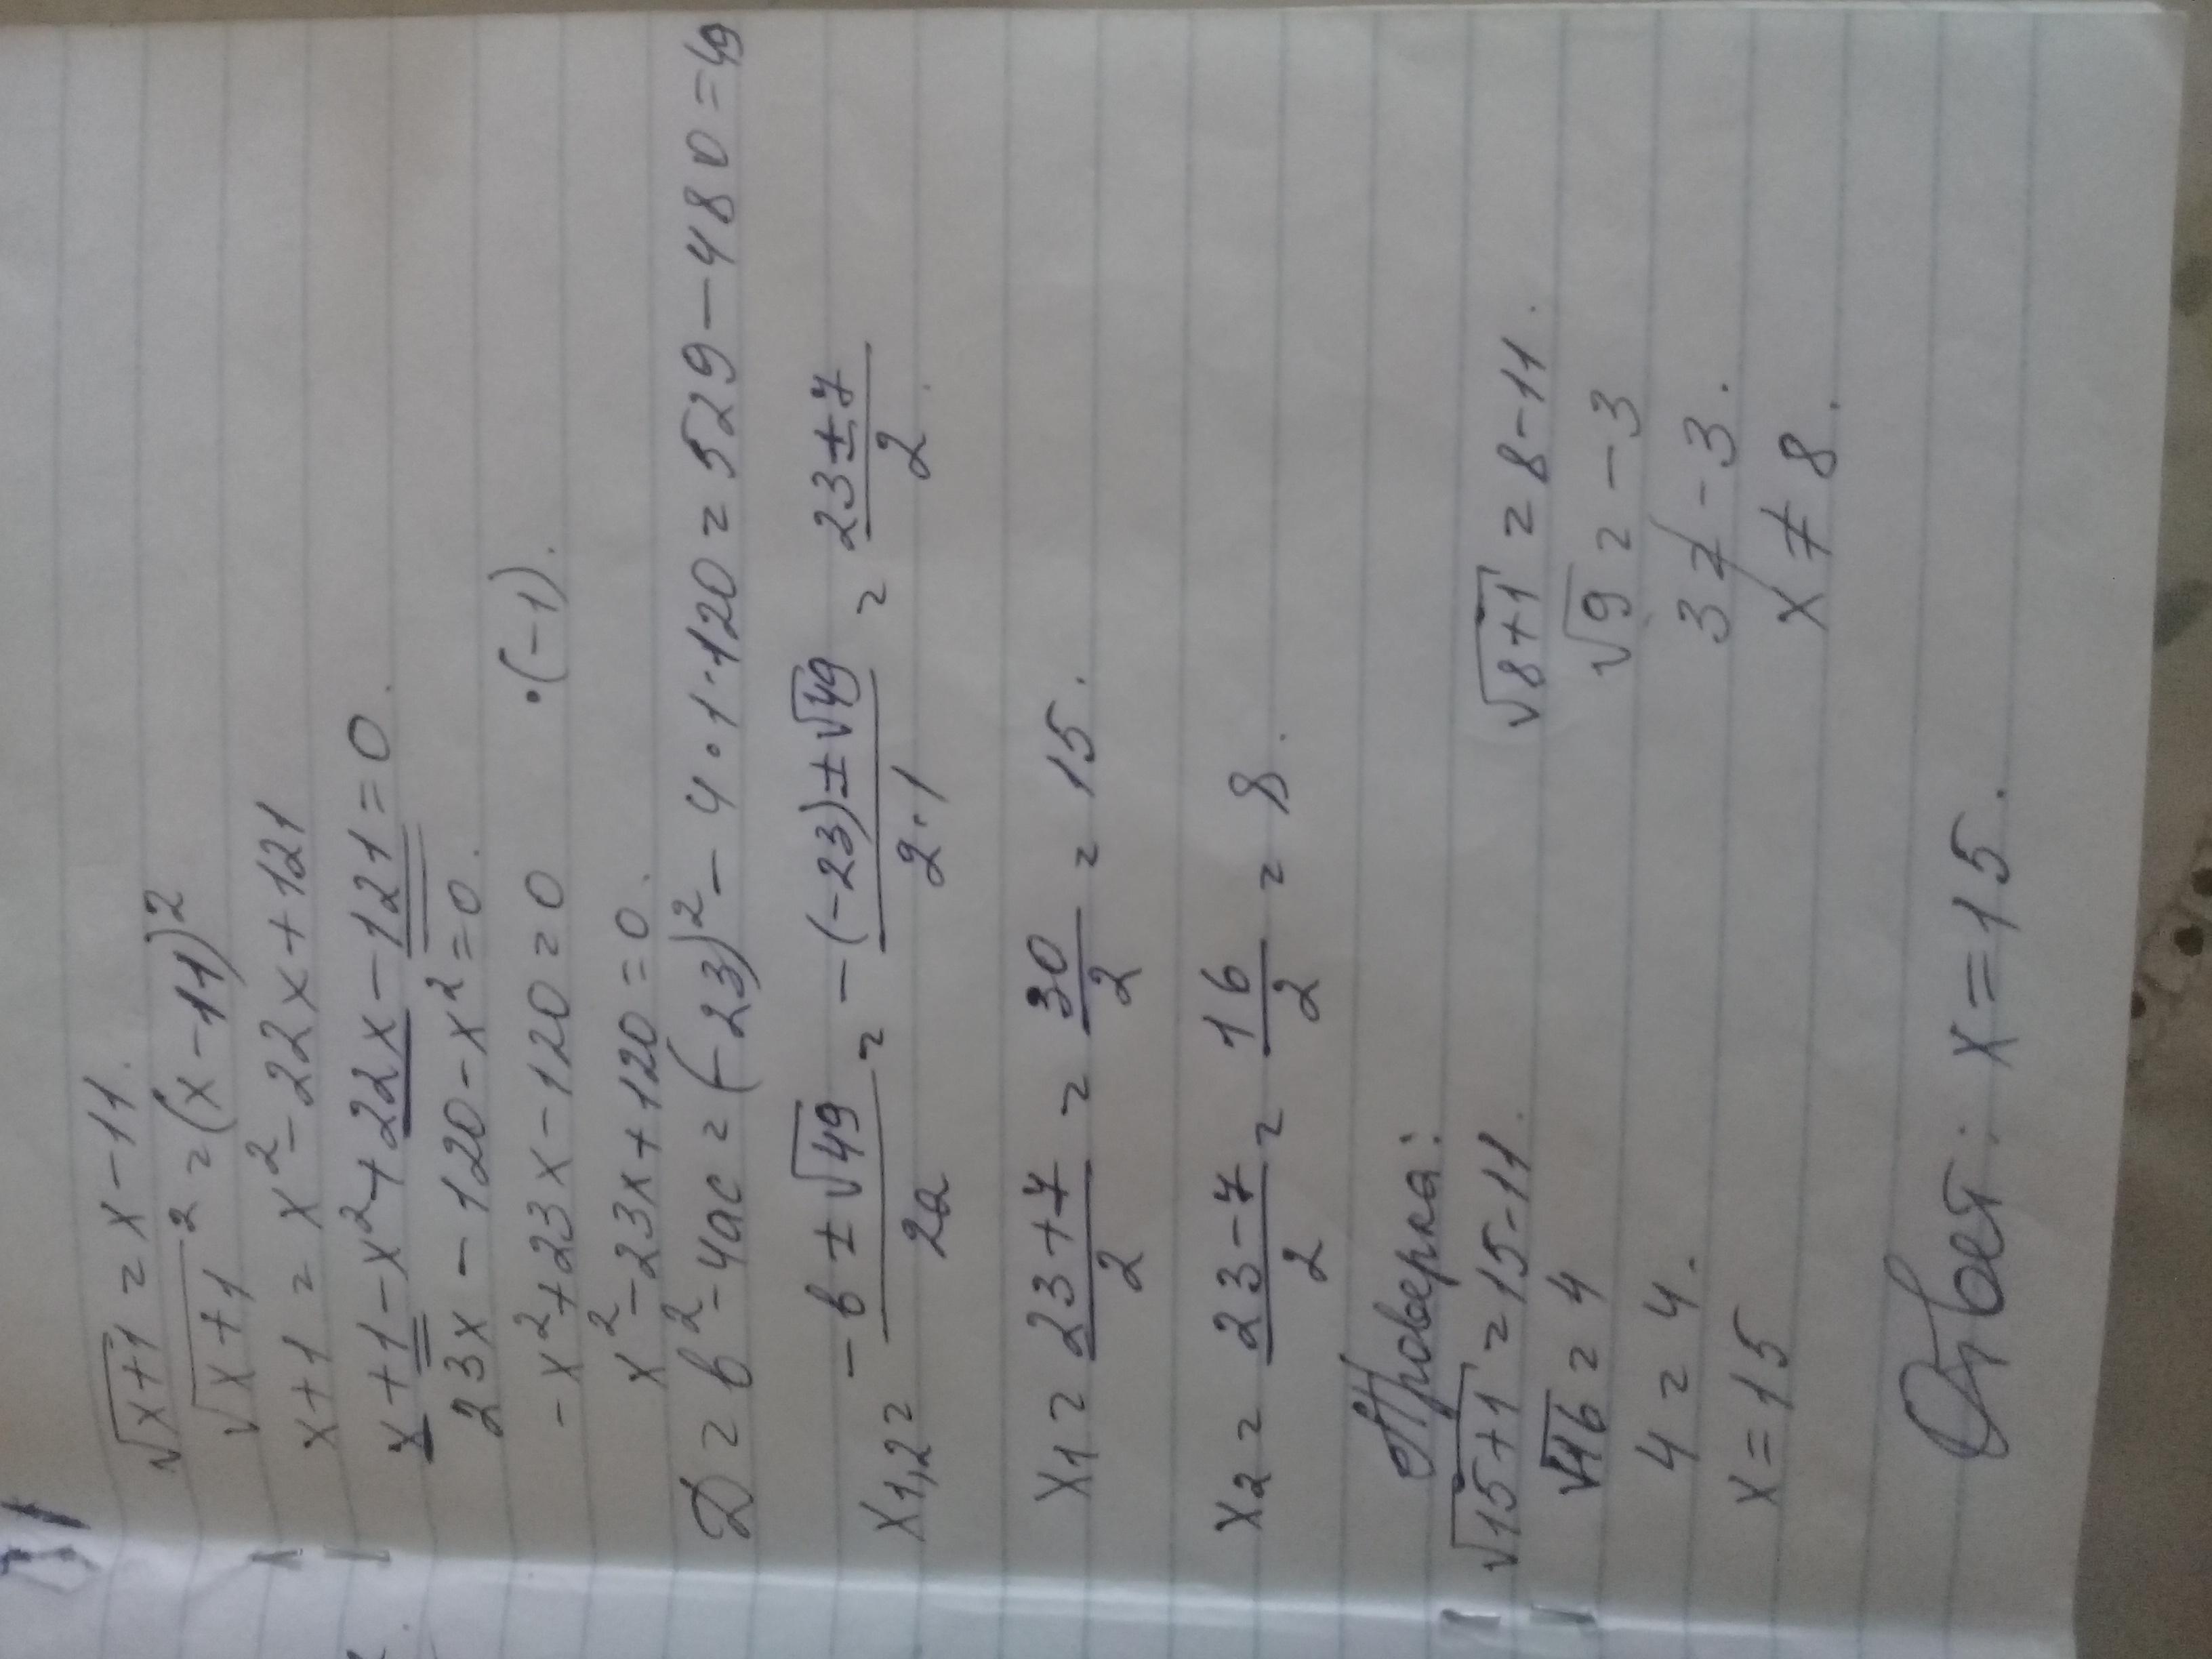 √x+1 = x-11.
√x+1² = (x-11)²
x+1 = x²-22x+121
x+1-x²+22x-121=0.
23x-120-x²=0.
-x²+23x-120=0 ·(-1).
x²-23x+120=0.
D = b²-4ac = (-23)²-4·1·120 = 529-480=49
x1,2 = -b±√49/2a = -(-23)±√49/2·1 = 23±7/2.
x1 = 23+7/2 = 30/2 = 15.
x2 = 23-7/2 = 16/2 = 8.
Проверка:
√15+1 = 15-11. √8+1 = 8-11.
√16 = 4 √9 = -3
4 = 4. 3 ≠ -3.
x=15 x ≠ 8.
Ответ: x=15.